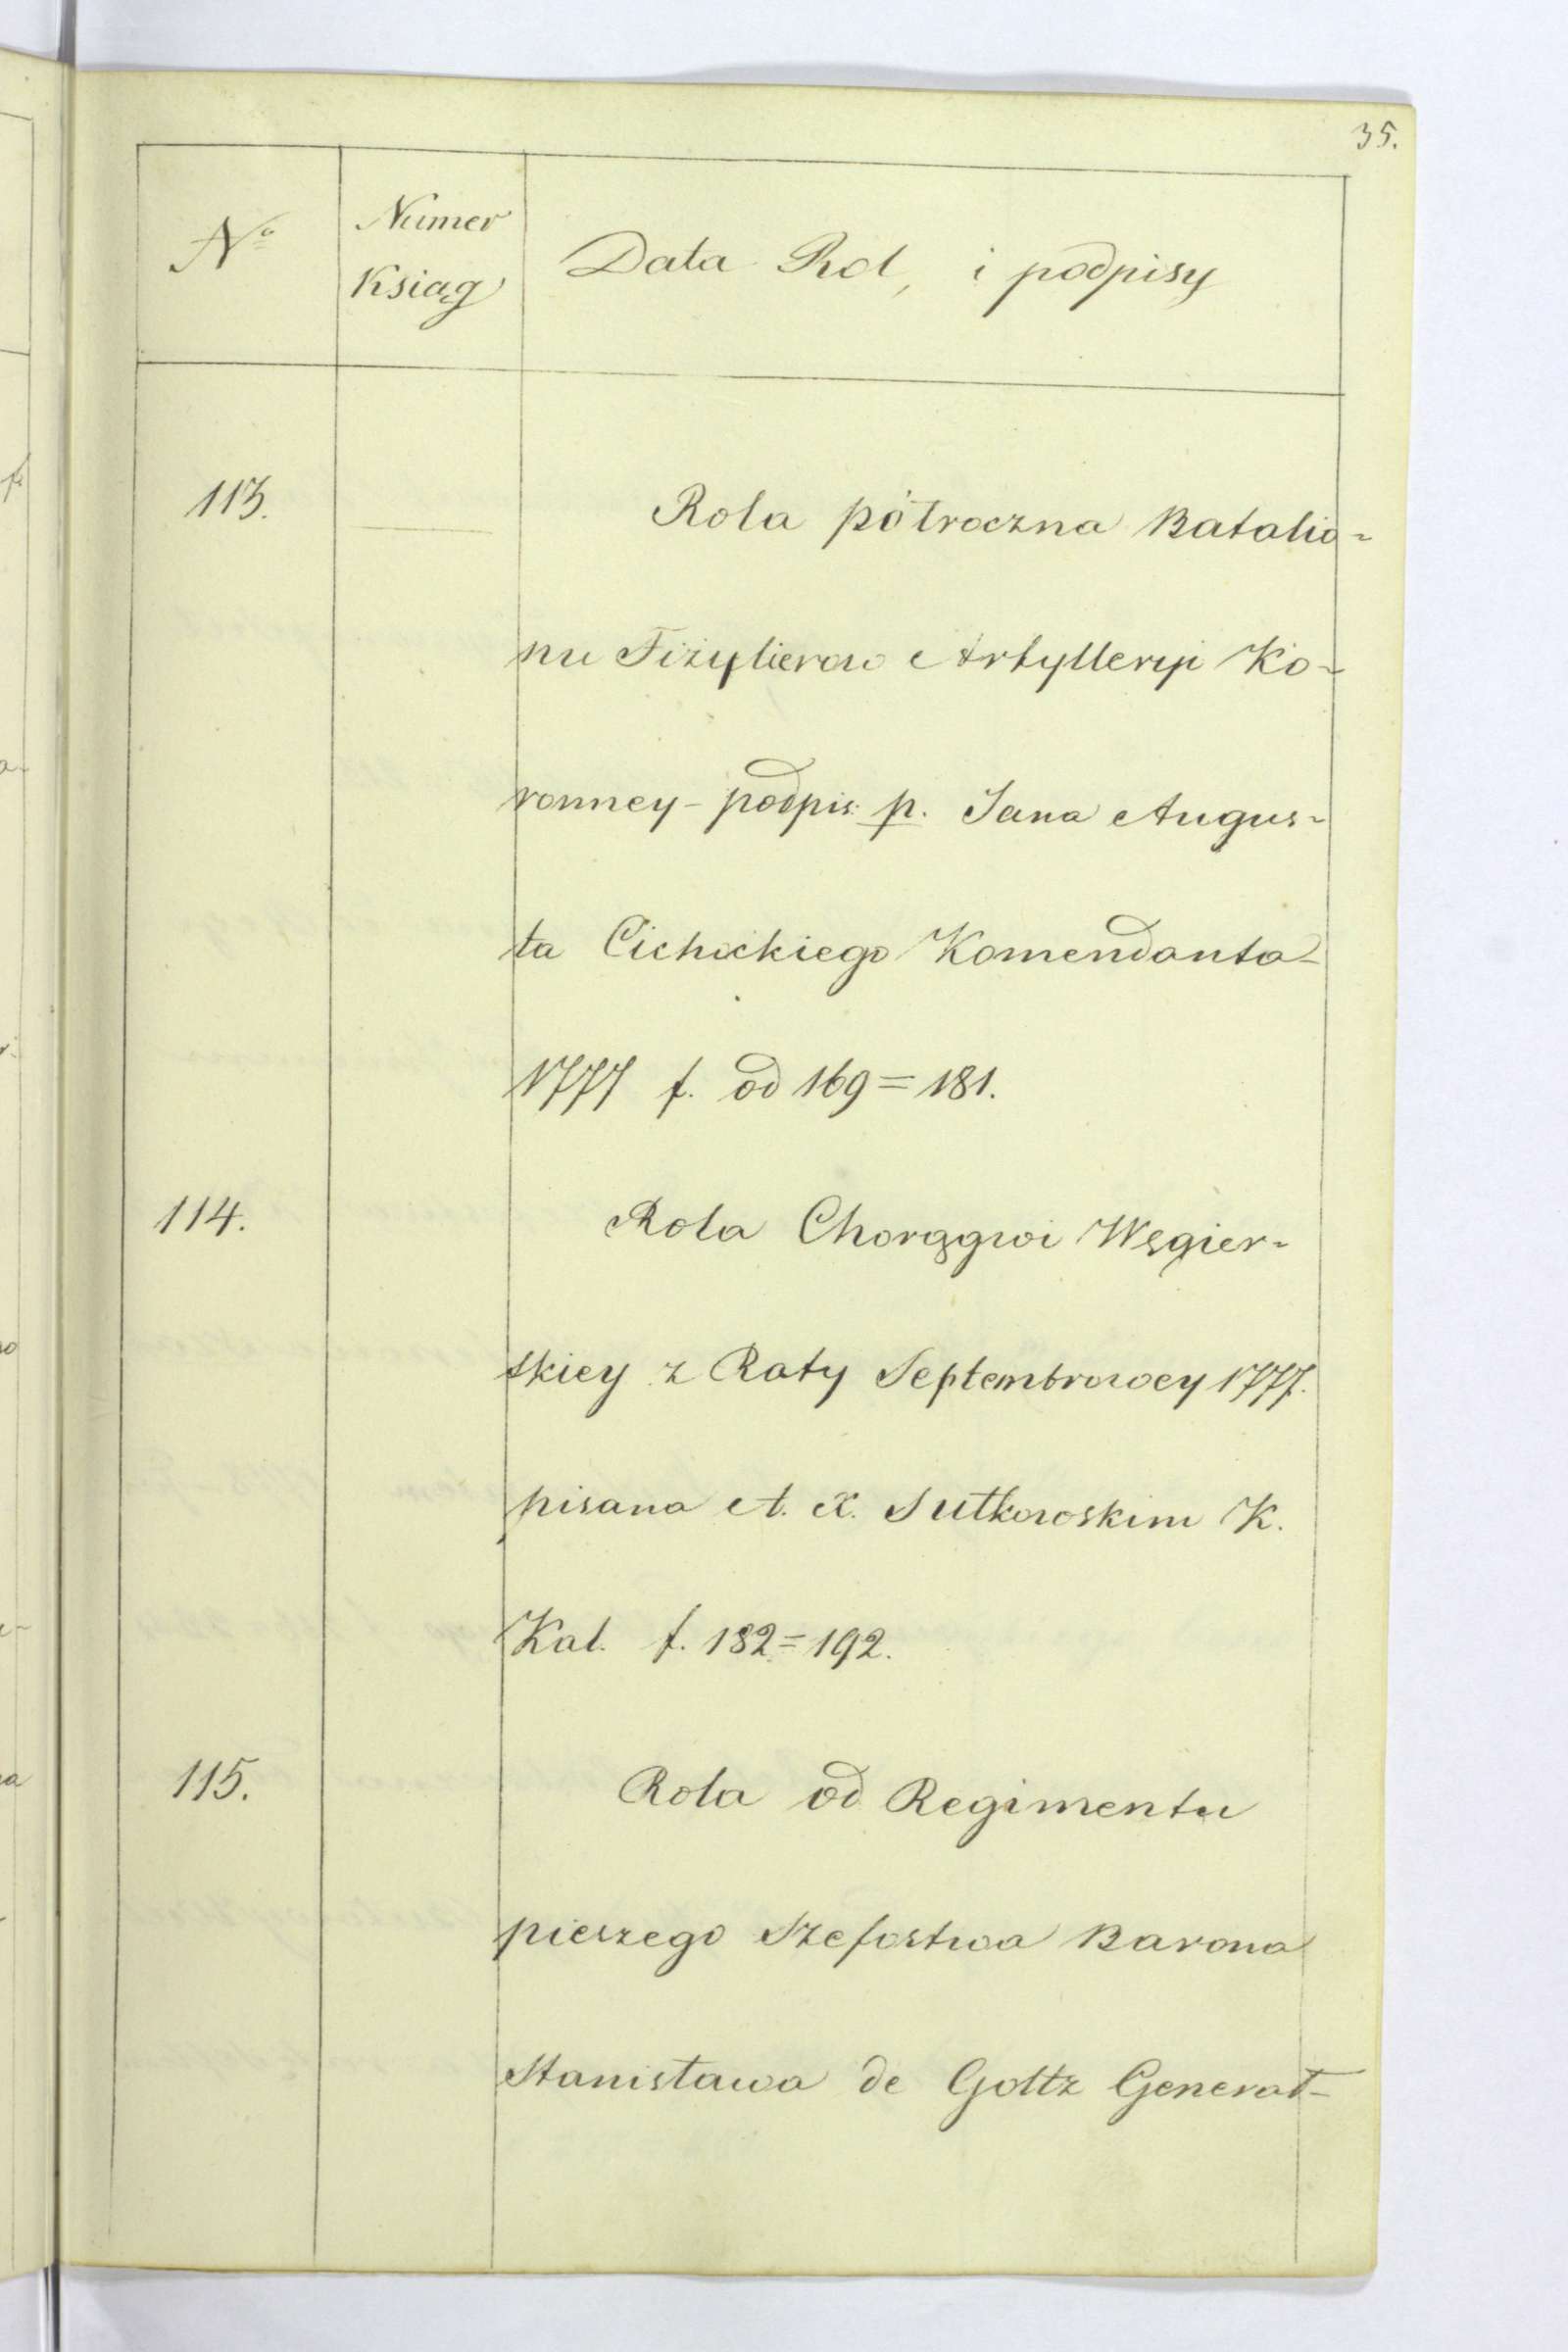 35.
No Numer Ksiąg Data Rol, i podpisy
113. Rola półroczna Batalio-
nu Fizylierow Artylleryi Ko-
ronney - podpis: p. Jana Augus-
ta Cichockiego Komendanta
1777 f. od 169=181.
114. Rola Chorągwi Węgier-
skiey z Raty Septembrowey 1777.
pisana A. X. Sułkowskim K.
Kal. f. 182=192.
115. Rola od Regimentu
pieszego Szefostwa Barona
Stanisława de Goltz Generał-